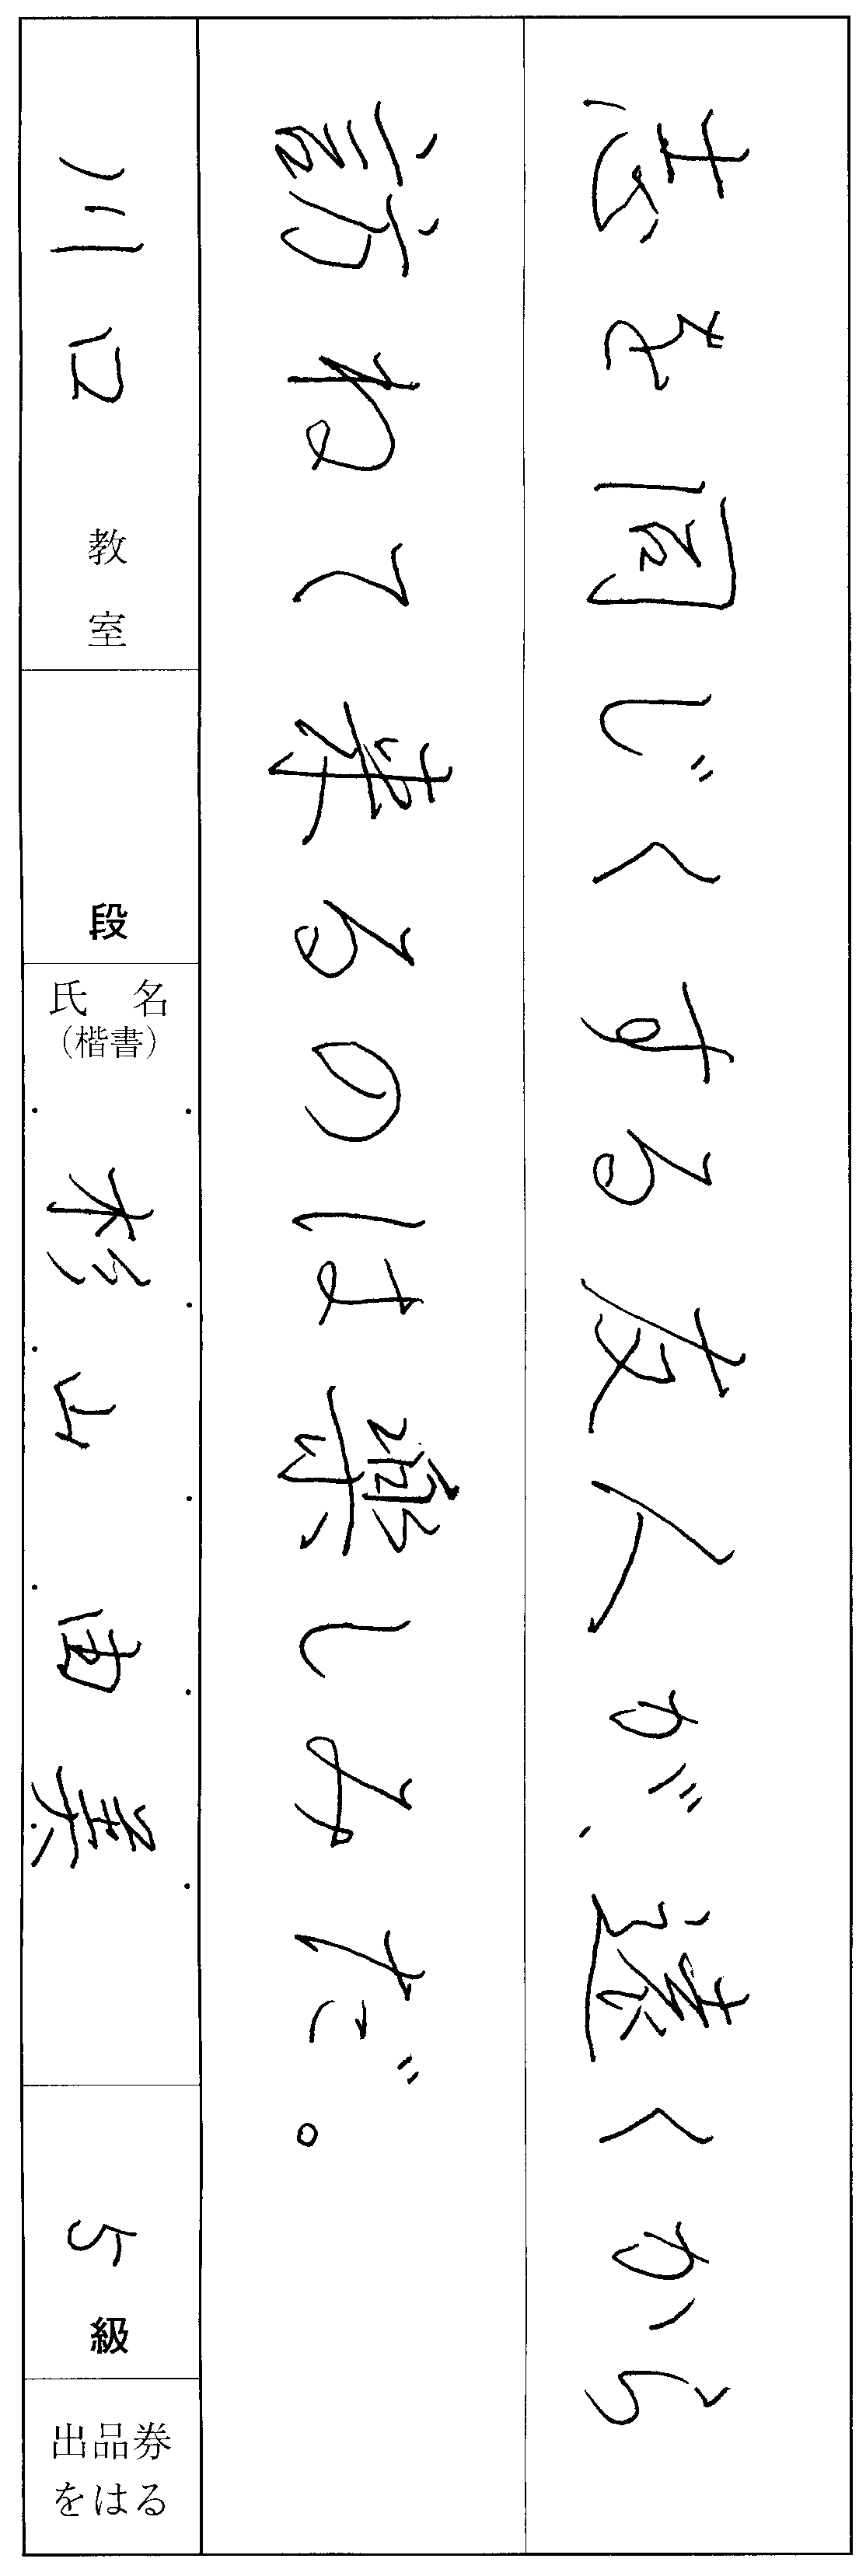 志を同じくする友人が、遠くから
訪ねて来るのは楽しみだ。
川口 教室
段
氏名
(楷書)
杉山 由美
5 級
出品券
をはる